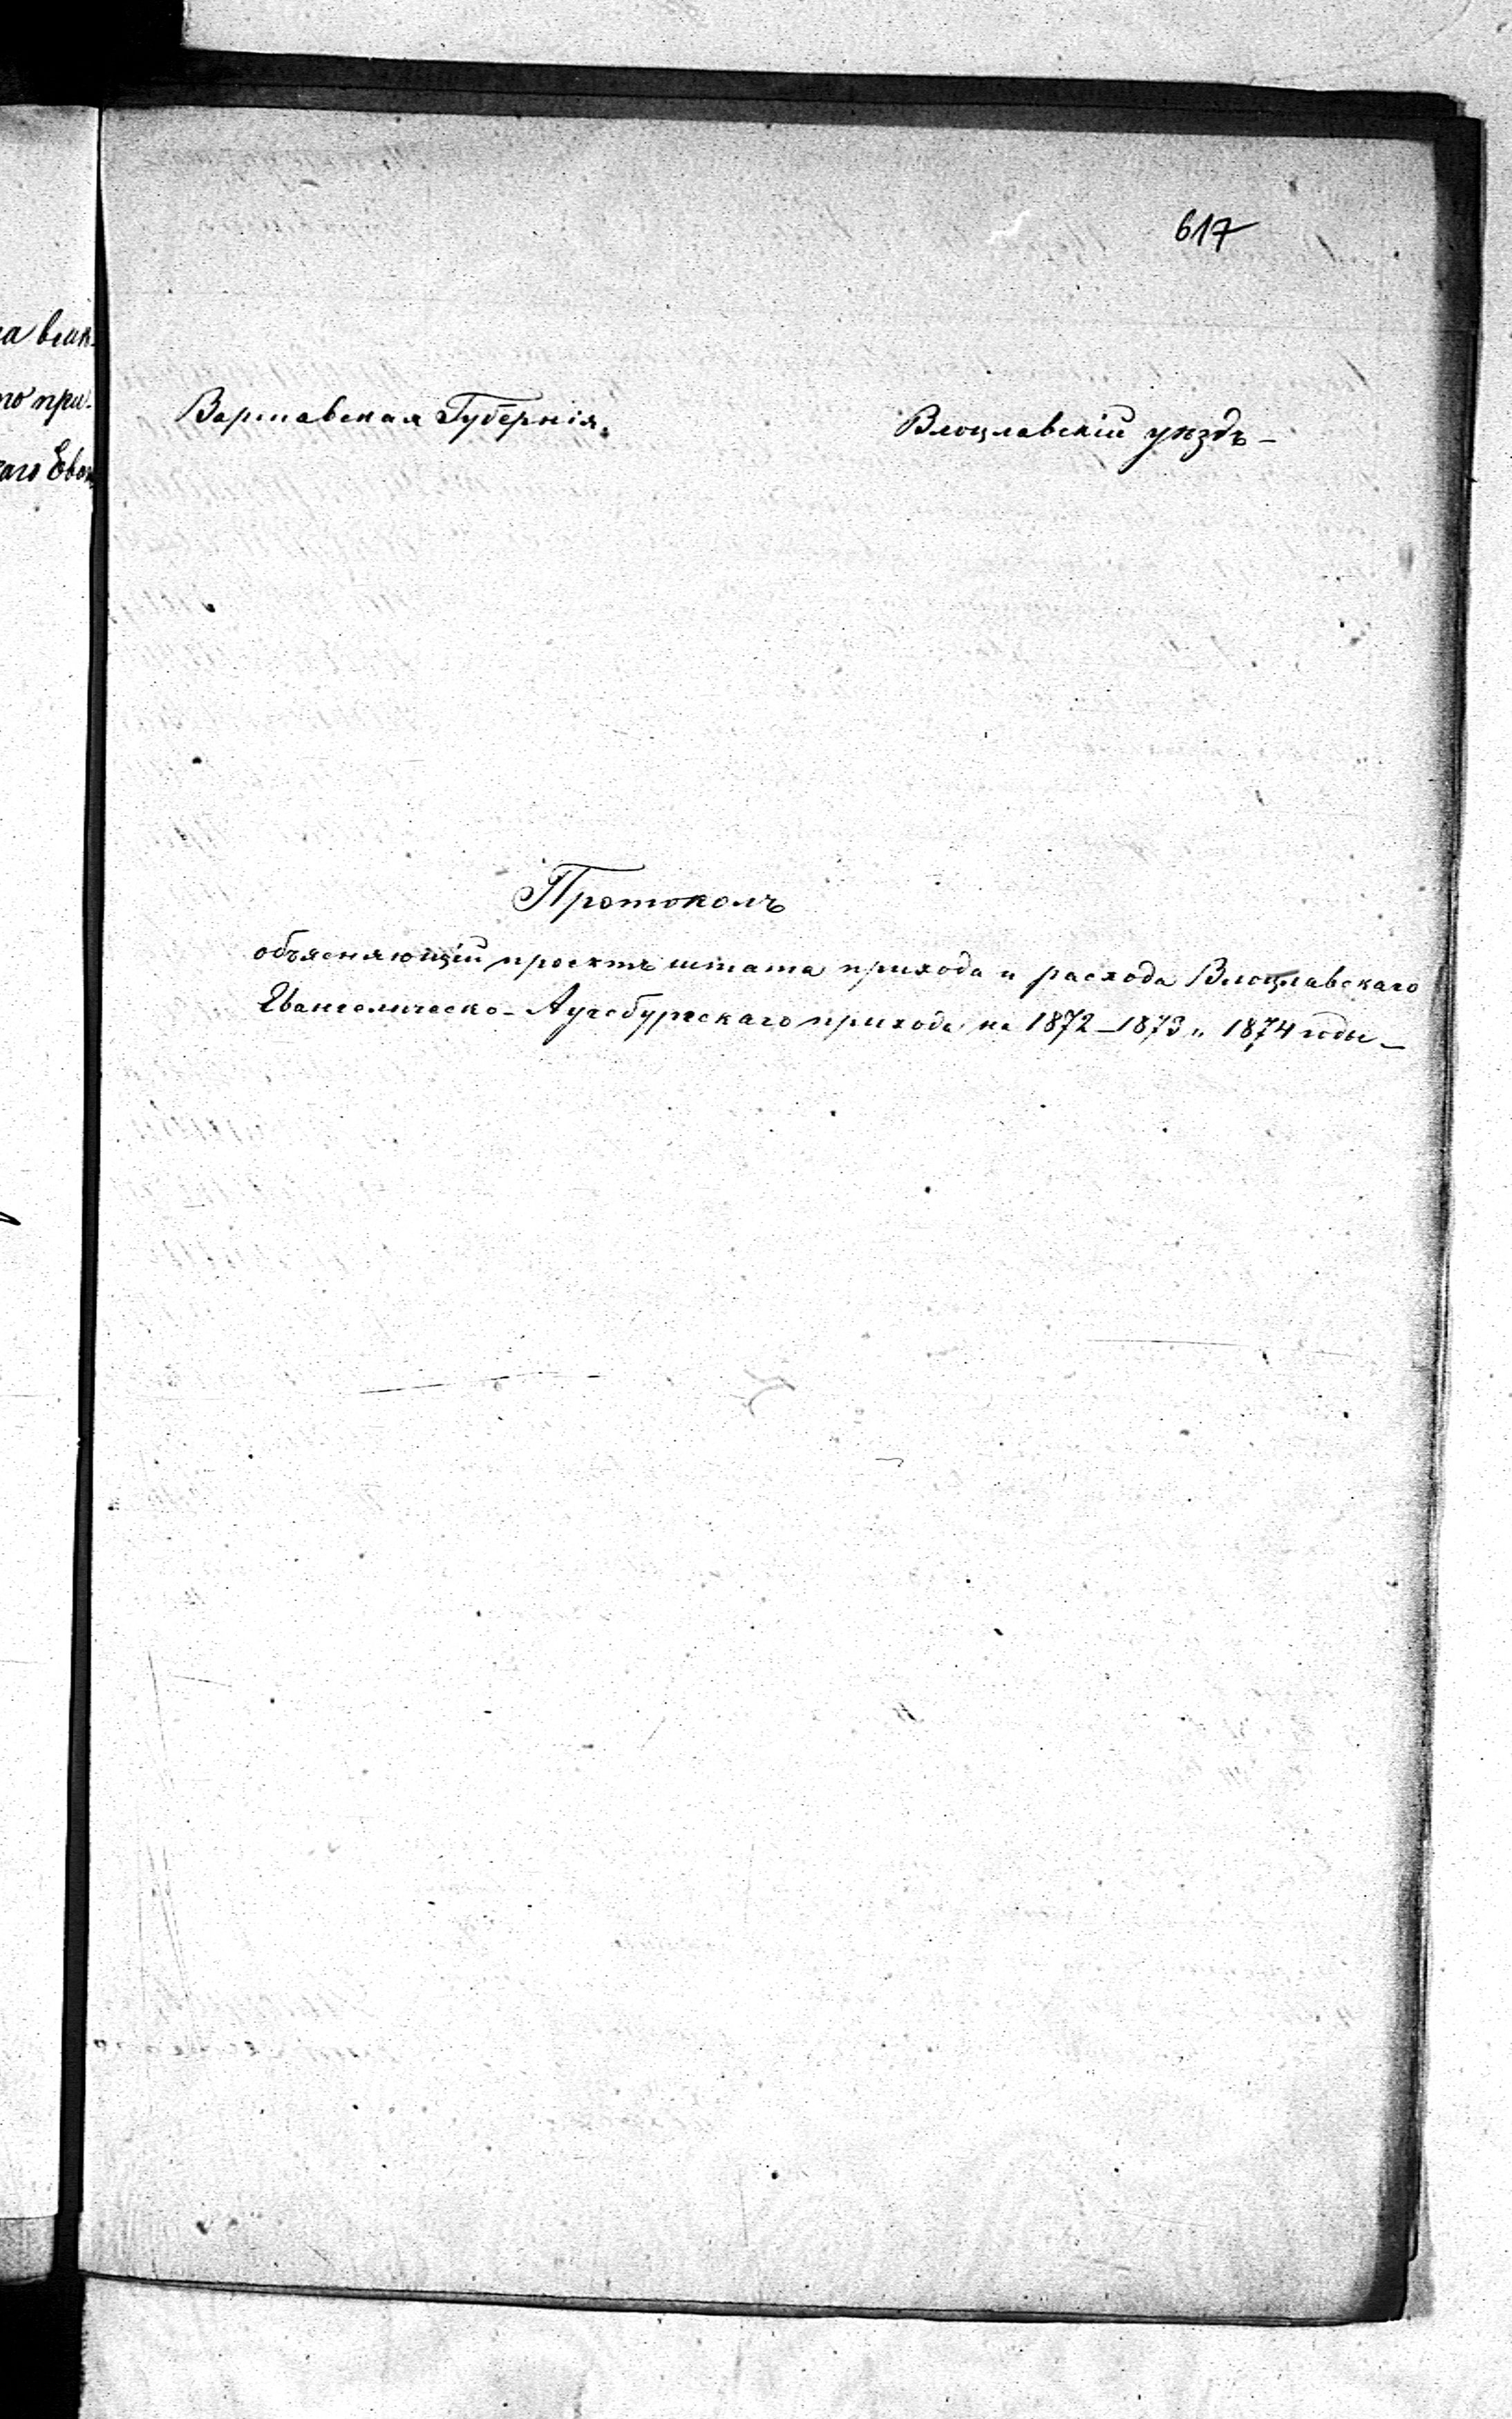 617
Варшавская Губернія.
Влоцлавскій уѣздъ –
Протоколъ
объясняющій проектъ штата прихода и расхода Влоцлавскаго
Евангелическо-Аугсбургскаго прихода на 1872–1873 и 1874 годы –
то при-
каго Еван